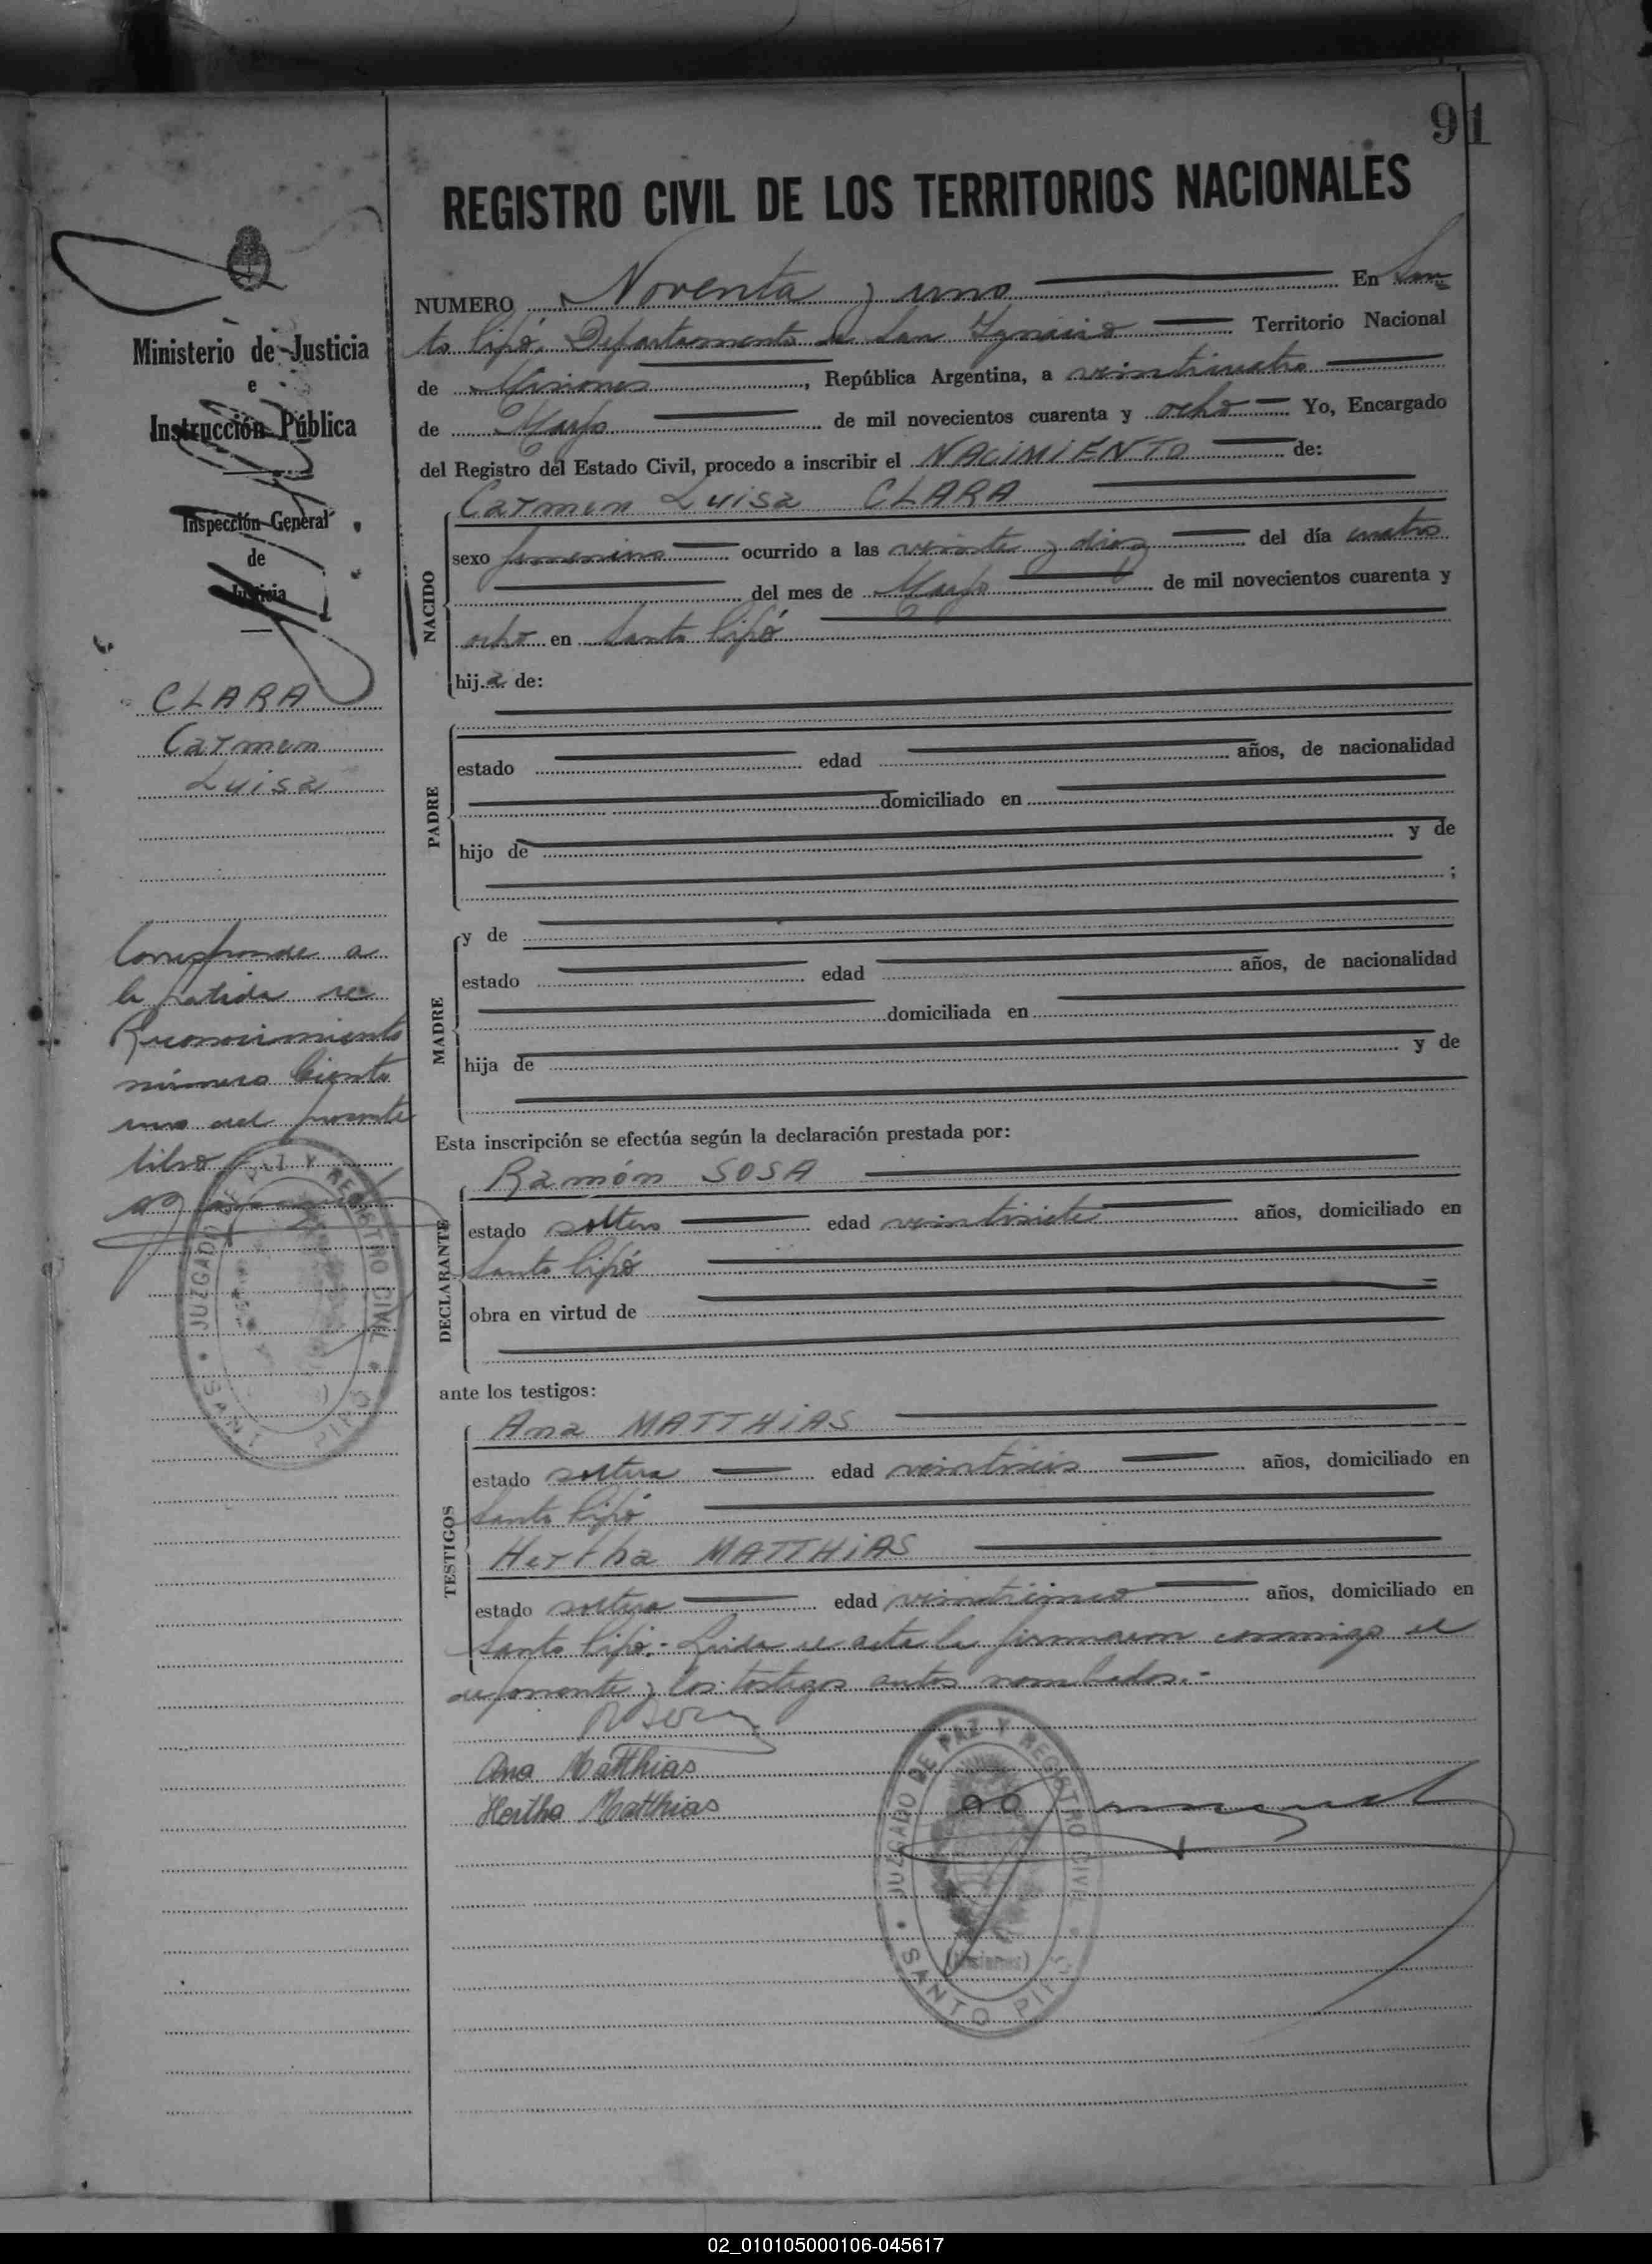 91
REGISTRO CIVIL DE LOS TERRITORIOS NACIONALES
Ministerio de Justicia
e
Instrucción Pública
Inspección General
de
Justicia
CLARA
Carmen
Luisa
Corresponde a
la partida de
Reconocimiento
número Ciento
uno del presente
libro
JUZGADO DE PAZ Y REGISTRO CIVIL
NUMERO Noventa y uno En San
to Pipó. Departamento de San Ygnacio Territorio Nacional
de Misiones, República Argentina, a veinticuatro
de Marzo de mil novecientos cuarenta y ocho Yo, Encargado
del Registro del Estado Civil, procedo a inscribir el NACIMIENTO de:
Carmen Luisa CLARA
NACIDO
sexo femenino ocurrido a las veinte y diez del día cuatro
del mes de Marzo de mil novecientos cuarenta y
ocho en Santo Pipó
hija de:
PADRE
estado edad años, de nacionalidad
domiciliado en
hijo de y de
;
MADRE
y de
estado edad años, de nacionalidad
domiciliada en
hija de y de
Esta inscripción se efectúa según la declaración prestada por:
DECLARANTE
Ramón SOSA
estado soltero edad veintisiete años, domiciliado en
Santo Pipó
obra en virtud de
ante los testigos:
TESTIGOS
Ana MATTHIAS
estado soltera edad veintiseis años, domiciliado en
Santo Pipó
Hertha MATTHIAS
estado soltera edad veinticinco años, domiciliado en
Santo Pipó.- Leida el acta la firmaron conmigo el
deponente y los testigos antes nombrados.-
R Sosa
Ana Matthias
Hertha Matthias
JUZGADO DE PAZ Y REGISTRO CIVIL
(Misiones)
SANTO PIPÓ
02_010105000106-045617